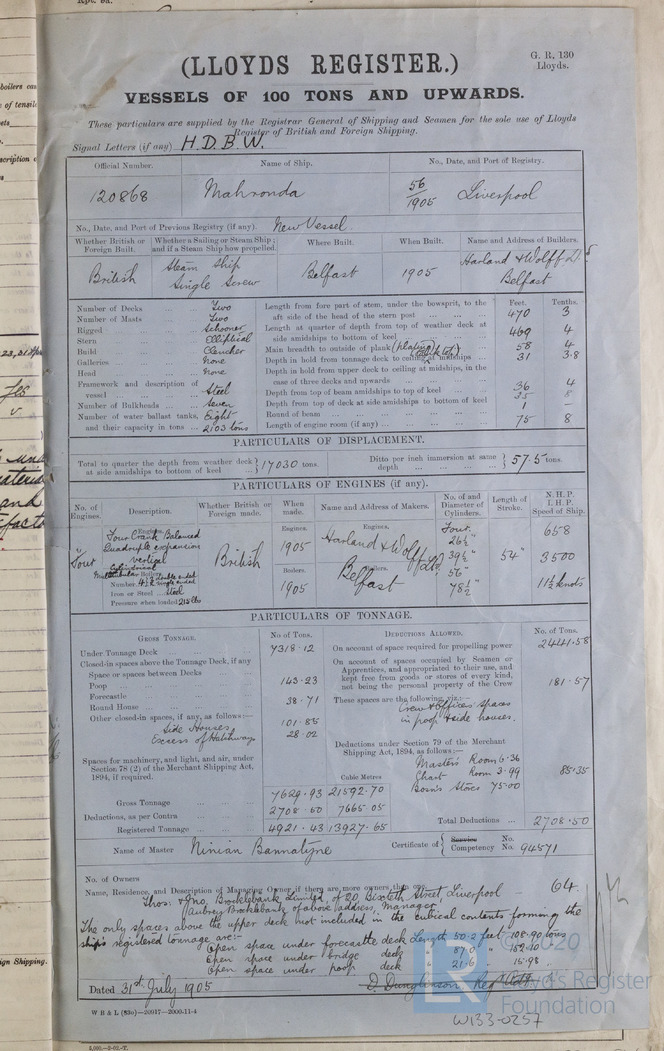 (LLOYDS REGISTER.)
G. R. 130
Lloyds.
VESSELS OF 100 TONS AND UPWARDS.
These particulars are supplied by the Registrar General of Shipping and Seamen for the sole use of Lloyds
Register of British and Foreign Shipping.
Signal Letters (if any) H.D.B.W.
Official Number. Name of Ship. No., Date, and Port of Registry.
120868 Mahronda 56/1905 Liverpool
No., Date, and Port of Previous Registry (if any). New Vessel.
Whether British or Foreign Built. Whether a Sailing or Steam Ship; and if a Steam Ship how propelled. Where Built. When Built. Name and Address of Builders.
British Steam Ship Single Screw Belfast 1905 Harland & Wolff Ltd Belfast
Number of Decks ... Two
Number of Masts ... Two
Rigged ... Schooner
Stern ... Elliptical
Build ... Clencher
Galleries ... None
Head ... None
Framework and description of vessel ... Steel
Number of Bulkheads ... Seven
Number of water ballast tanks, and their capacity in tons ... Eight 2103 tons
Feet. Tenths.
Length from fore part of stem, under the bowsprit, to the aft side of the head of the stern post ... 470 3
Length at quarter of depth from top of weather deck at side amidships to bottom of keel ... 469 4
Main breadth to outside of plank (plating) ... 58 4
Depth in hold from tonnage deck to ceiling at midships ... 31 3.8
Depth in hold from upper deck to ceiling at midships, in the case of three decks and upwards ...
Depth from top of beam amidships to top of keel ... 36 4
Depth from top of deck at side amidships to bottom of keel 35 8
Round of beam ... 1 –
Length of engine room (if any) ... 75 8
PARTICULARS OF DISPLACEMENT.
Total to quarter the depth from weather deck at side amidships to bottom of keel } 17030 tons. Ditto per inch immersion at same depth } 57.5 tons.
PARTICULARS OF ENGINES (if any).
No. of Engines. Description. Whether British or Foreign made. When made. Name and Address of Makers. No. of and Diameter of Cylinders. Length of Stroke. N.H.P. I.H.P. Speed of Ship.
Four
Engines.
Four Crank Balanced
Quadruple expansion
Vertical
Cylindrical
Number 4½ double ended
Iron or Steel Steel
Pressure when loaded 215 lbs
British
Engines. 1905
Boilers. 1905
Engines.
Harland & Wolff Ltd
Boilers.
Belfast
Four.
26½"
39½"
56"
78½"
54"
658
3500
11½ knots
PARTICULARS OF TONNAGE.
GROSS TONNAGE. No. of Tons.
Under Tonnage Deck ... 7318.12
Closed-in spaces above the Tonnage Deck, if any
Space or spaces between Decks
Poop ... 143.23
Forecastle
Round House ... 38.71
Other closed-in spaces, if any, as follows:—
Side Houses 101.85
Excess of Hatchways 28.02
Spaces for machinery, and light, and air, under Section 78 (2) of the Merchant Shipping Act, 1894, if required.
Cubic Metres
Gross Tonnage 7629.93 21592.70
Deductions, as per Contra 2708.50 7665.05
Registered Tonnage 4921.43 13927.65
DEDUCTIONS ALLOWED. No. of Tons.
On account of space required for propelling power 2441.58
On account of spaces occupied by Seamen or Apprentices, and appropriated to their use, and kept free from goods or stores of every kind, not being the personal property of the Crew 181.57
These spaces are the following, viz.:—
Crew & Officers spaces
in poop & side houses.
Deductions under Section 79 of the Merchant Shipping Act, 1894, as follows:—
Master's Room 6.36
Chart Room 3.99
Bosn's Stores 75.00
85.35
Total Deductions ... 2708.50
Name of Master Ninian Bannatyne Certificate of { Service No. Competency No. 94571
No. of Owners
Name, Residence, and Description of Managing Owner if there are more owners than one
Thos: & Jno. Brocklebank Limited, of 20, Bixteth Street, Liverpool — 64
Aubrey Brocklebank, of above address, Manager.
The only spaces above the upper deck not included in the cubical contents forming the
ship's registered tonnage are:—
Open space under forecastle deck Length 50.2 feet 108.90 tons
Open space under bridge deck " 87.0 " 152.10 "
Open space under poop deck " 21.6 " 15.98 "
Dated 31st July 1905
W B & L (83o)—20917—2000-11-4
W133-0257
© 2020
LR
Lloyd's Register
Foundation
ign Shipping.